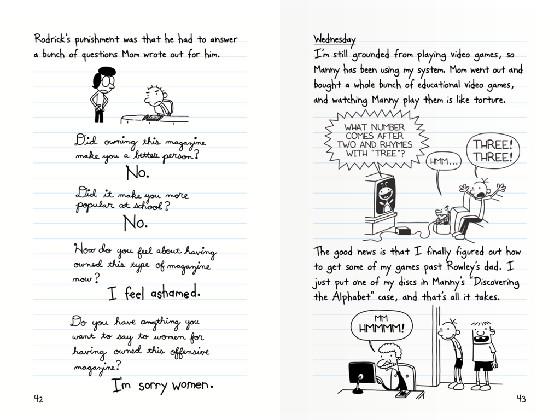 Rodrick's punishment was that he had to answer
a bunch of questions Mom wrote out for him.
Did owning this magazine
make you a better person?
No.
Did it make you more
popular at school?
No.
How do you feel about having
owned this type of magazine
now?
I feel ashamed.
Do you have anything you
want to say to women for
having owned this offensive
magazine?
I'm sorry women.
42
Wednesday
I'm still grounded from playing video games, so
Manny has been using my system. Mom went out and
bought a whole bunch of educational video games,
and watching Manny play them is like torture.
WHAT NUMBER
COMES AFTER
TWO AND RHYMES
WITH "TREE"?
HMM...
THREE!
THREE!
The good news is that I finally figured out how
to get some of my games past Rowley's dad. I
just put one of my discs in Manny's "Discovering
the Alphabet" case, and that's all it takes.
MM
HMMMM!
43